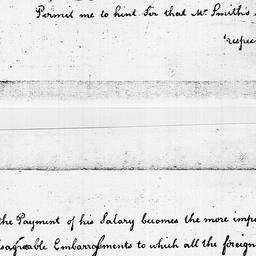 Permit me to hint Sir that Mr Smith's
respec
the Payment of his Salary becomes the more imp
isagreable Embarrassments to which all the foreign